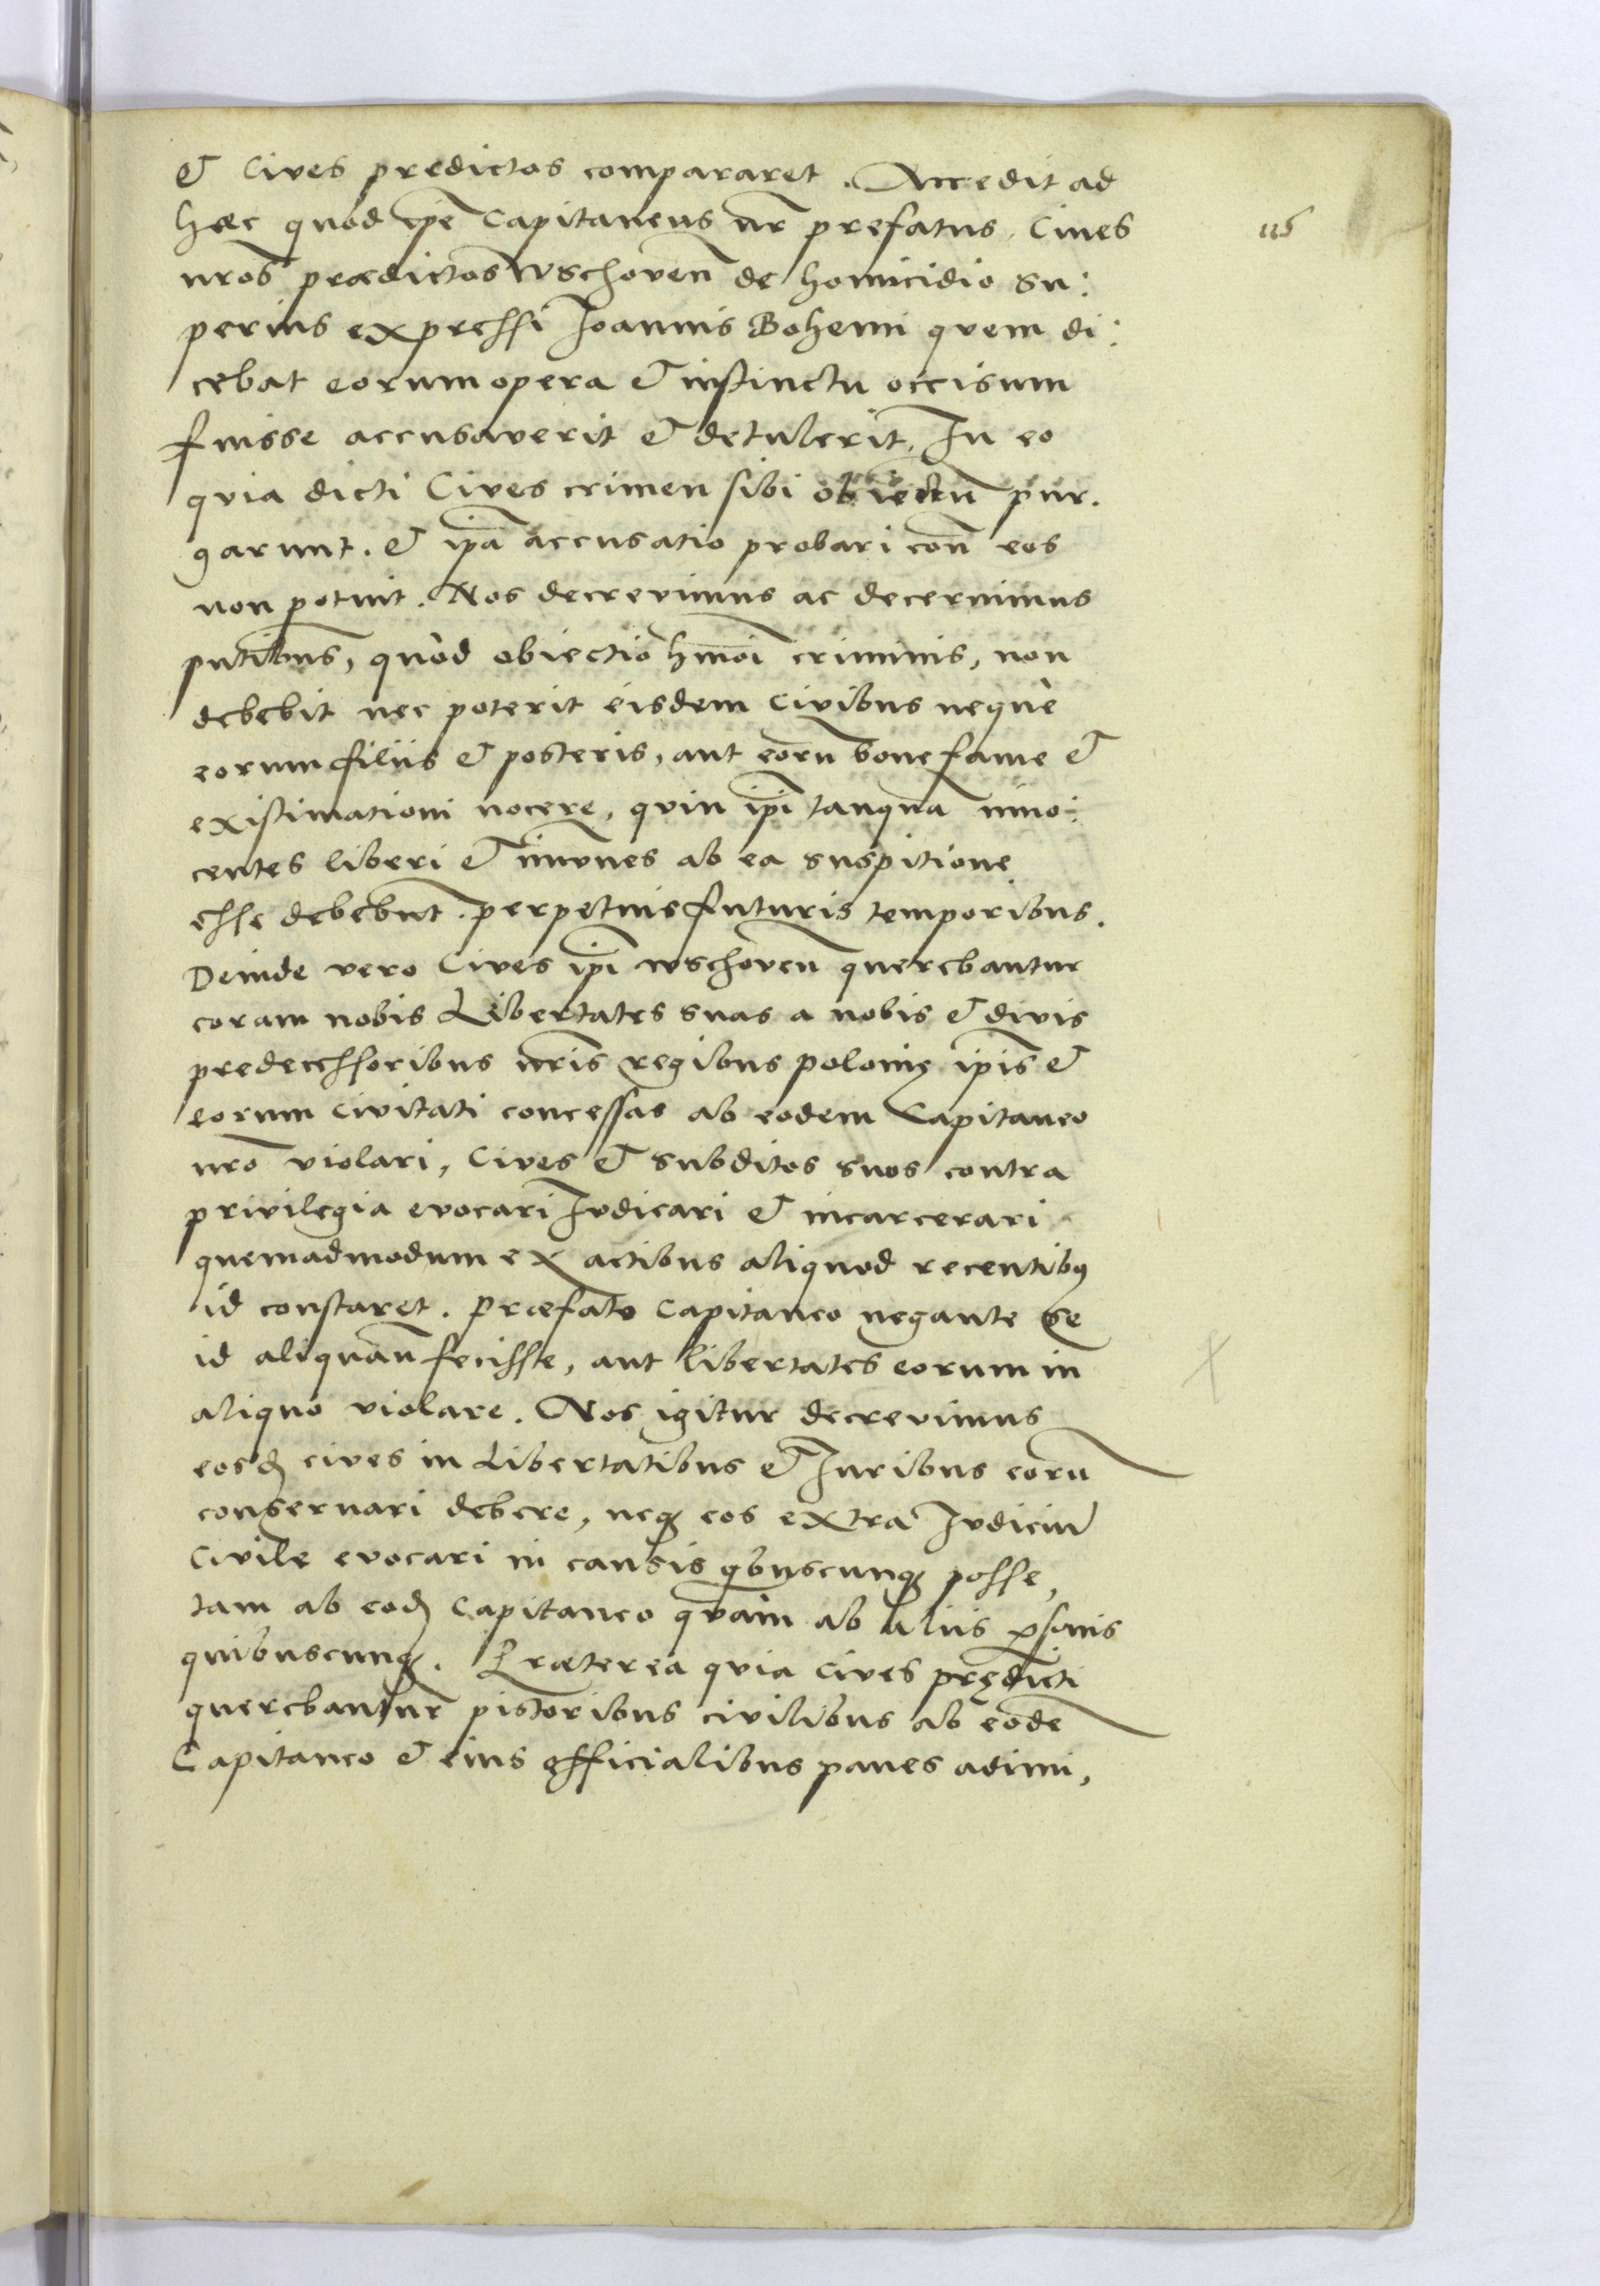 & Cives predictos compararet. Accedit ad
haec quod ipẽ Capitaneus nr̃ prefatus Cives
nros̃ praedictos Wschoveñ de homicidio su:
perius expressi Joannis Bohemi quem di:
cebat eorum opera & instinctu occisum
fuisse accusaverit & detulerit. In eo
quia dicti Cives crimen sibi obiectũ pur.
garunt. & ipã accusatio probari coñ eos
non potuit. Nos decrevimus ac decernimus
pntibus̃, quòd obiectio hmõi criminis, non
debebit nec poterit eisdem Civibus nequè
eorum filiis & posteris, aut eorũ bone fame &
existimationi nocere, quin ipĩ tanquã inno:
centes liberi & imũnes ab ea suspitione
esse debebũt. perpetuis futuris temporibus.
Deinde vero Cives ipĩ wschoveñ querebantur
coram nobis Libertates suas a nobis & divis
predecessoribus nris̃ regibus Polonię ipis̃ &
eorum Civitati concessas ab eodem Capitaneo
nrõ violari, Cives & subditos suos contra
privilegia evocari Iudicari & incarcerari
quemadmodum ex actibus aliquod recentibus
id constaret. Praefato Capitaneo negante se
id aliquañ fecisse, aut libertates eorum in
aliquo violare. Nos igitur decrevimus
eosdẽ cives in Libertatibus & Iuribus eorũ
conservari debere, neq̃ eos extra Iudiciũ
Civile evocari in causis qbuscunq̃ posse,
tam ab eodẽ Capitaneo quam ab aliis psonis
quibuscunq̃. Praeterea quia Cives prędicti
querebantur pistoribus civilibus ab eodẽ
Capitaneo & eius officialibus panes adimi,